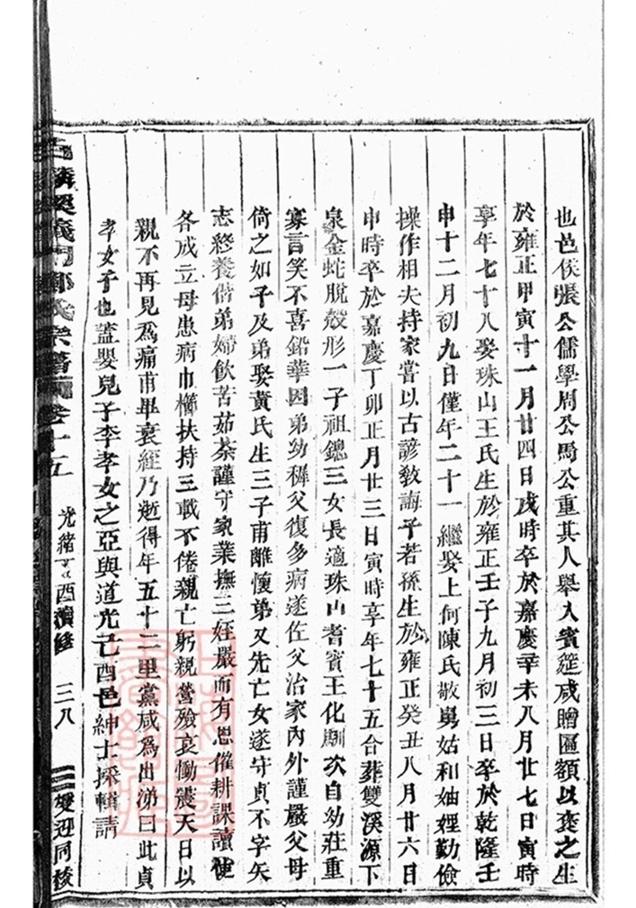 也邑侯張公儒學周公馬公重其人舉入賓筵咸贈匾額以褒之生
於雍正甲寅十一月廿四日戌時卒於嘉慶辛未八月廿七日寅時
享年七十八娶珠山王氏生於雍正壬子九月初三日卒於乾隆壬
申十二月初九日僅年二十一繼娶上何陳氏敬舅姑和妯娌勤儉
操作相夫持家嘗以古諺教誨子若孫生於雍正癸丑八月廿六日
申時卒於嘉慶丁卯正月廿三日寅時享年七十五合葬雙溪源下
泉金蛇脫殼形一子祖鏓三女長適珠山耆賓王化期次自幼莊重
寡言笑不喜鉛華因弟幼穉父復多病遂佐父治家內外謹嚴父母
倚之如子及弟娶黃氏生三子甫離懷弟又先亡女遂守貞不字矢
志終養偕弟婦飲苦茹荼謹守家業撫三姪嚴而有恩催耕課讀使
各成立母患病巾櫛扶持三載不倦親亡躬親營殮哀慟震天日以
親不再見為痛甫畢衰絰乃逝得年五十二里黨咸為出涕曰此貞
孝女子也蓋嬰兒子李孝女之亞與道光己酉邑紳士採輯請
義門鄭氏宗譜 卷十五 光緒丁酉續修 三八 雙迎同校